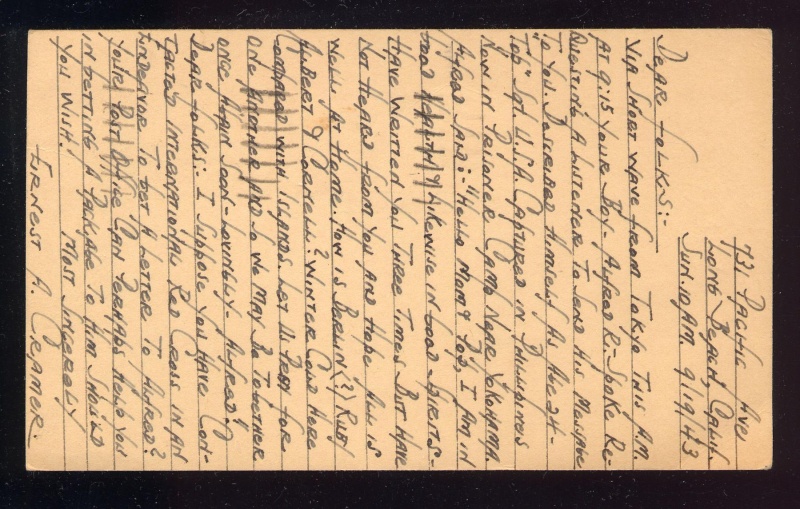 731 Pacific Ave
Long Beach, Calif.
Sun. 10 AM. 9/19/43
Dear Folks:-
Via Short Wave From Tokyo This A.M.
At 9:15 Your Boy- Alfred R- Spoke Re-
questing A Listener To Send His Message
To You. Described Himself As Age 24-
Sgt. U.S.A. Captured in Phillipines
Now in Prisoner Camp Near Yokohama.
Alfred Said:- "Hello Mom & Pop, I Am in
Good Health & Likewise in Good Spirits-
Have Written You Three Times But Have
Not Heard From You And Hope All is
Well At Home. How is (?) Ruby
Albert & Cornell? Winter Cold Here
Compared With Islands. Let Us Pray For
One Another And So We May Be Together
Once Again Soon- Lovingly- Alfred."
Dear Folks:- I Suppose You Have Con-
tacted International Red Cross in An
Endeavor To Get A Letter To Alfred?
Your Post Office Can Perhaps Help You
in Getting A Package To Him Should
You Wish. Most Sincerely
Ernest A. Cramer.